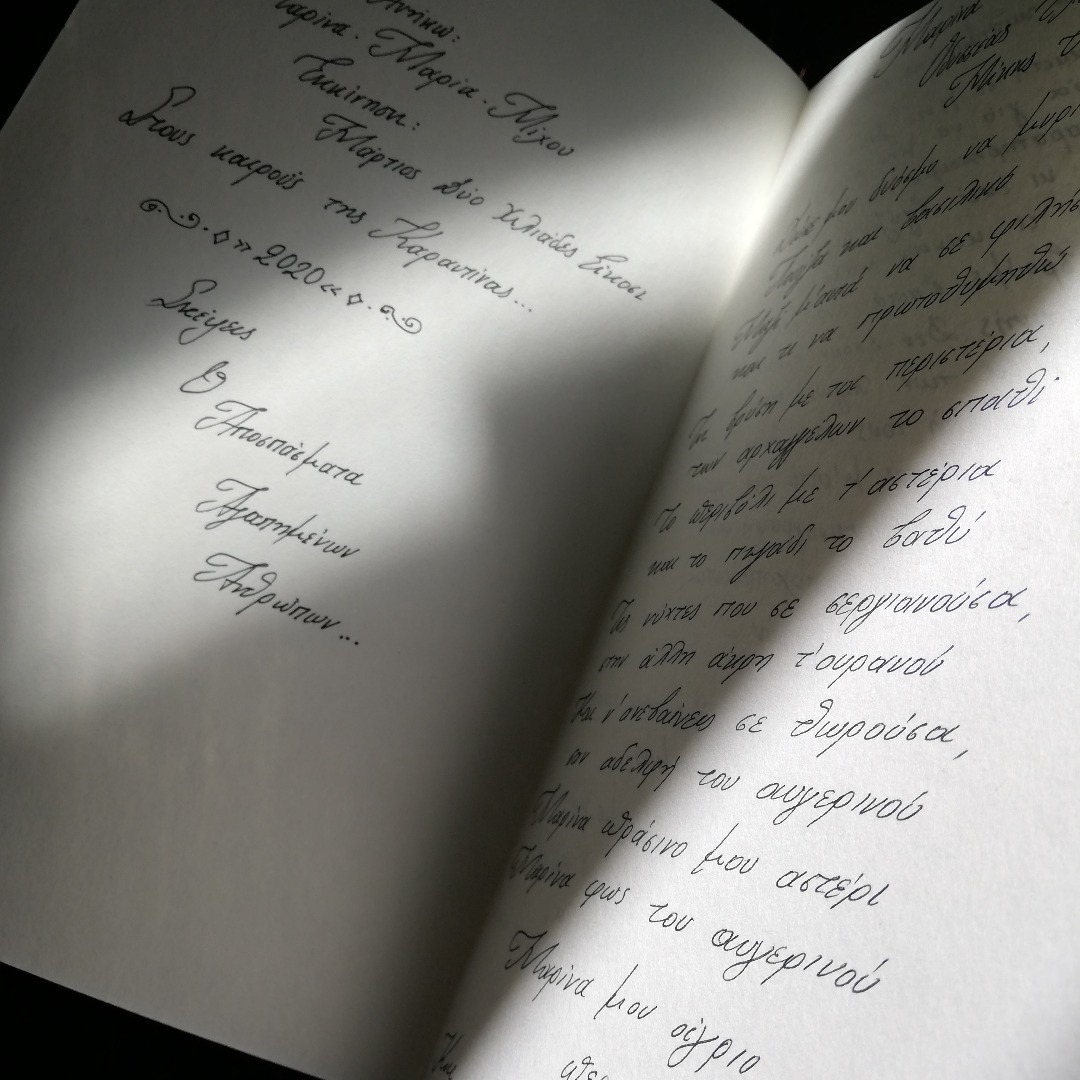 Ανήκω:
Μαρίνα - Μαρία - Μίχου
Εκκίνηση:
Μάρτιος Δύο Χιλιάδες Είκοσι
Στους καιρούς της Καραντίνας...
" 2020 "
Σκέψεις
&
Αποσπάσματα
Αγαπημένων
Ανθρώπων...
Μαρίνα
Οδυσσέας
Μίκης
Δώσ' μου δυόσμο να μυρί
Λουίζα και βασιλικό
Μαζί μ' αυτά να σε φιλήσ
και τι να πρωτοθυμηθώ
Τη βρύση με τα περιστέρια,
των αρχαγγέλων το σπαθί
Το περιβόλι με τ' αστέρια
και το πηγάδι το βαθύ
Τις νύχτες που σε σεργιανούσα,
στην άλλη άκρη τ' ουρανού
Και ν' ανεβαίνεις σε θωρούσα,
σαν αδελφή του αυγερινού
Μαρίνα πράσινο μου αστέρι
Μαρίνα φως του αυγερινού
Μαρίνα μου άγριο